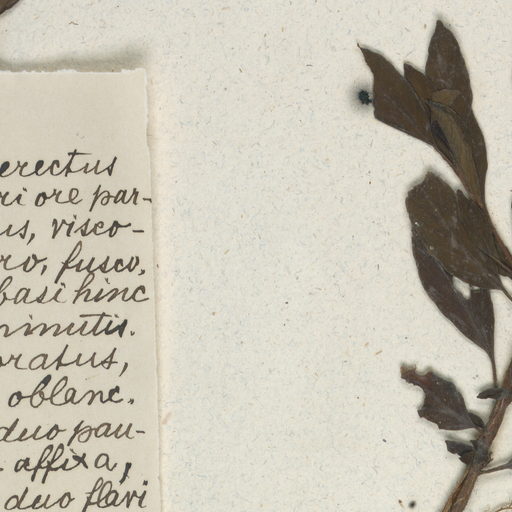 erectus
ri ore par-
us, visco-
ro, fusco,
basi hinc
minutis.
oratus,
oblanc.
duo pau-
affixa,
duo flavi